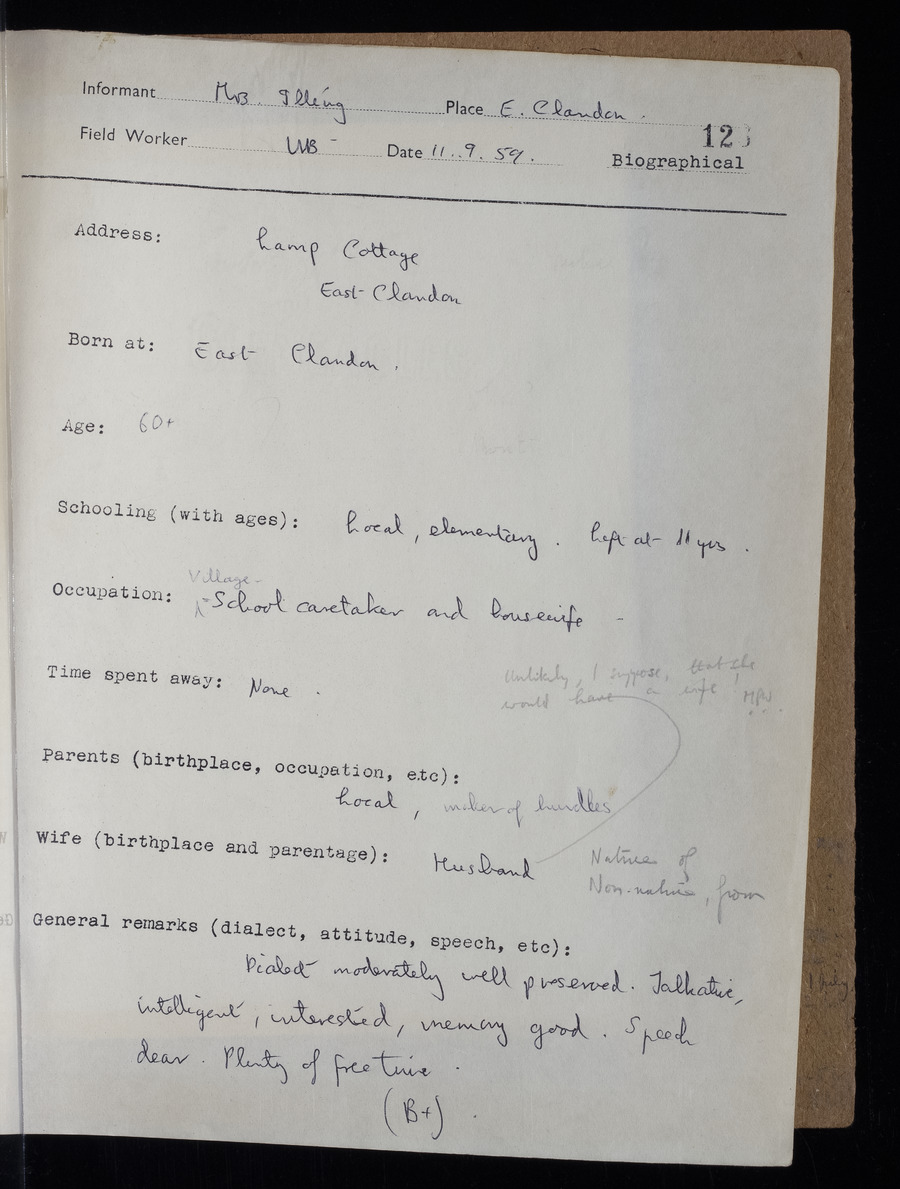 Informant Mrs. Illing Place E. Clandon.
Field Worker WB Date 11.9.59.
Biographical
Address: Lamp Cottage
East Clandon
Born at: East Clandon.
Age: 60+
Schooling (with ages): Local, elementary. Left at 11 yrs.
Village-
Occupation: School caretaker and housewife -
Unlikely, I suppose, that she
Time spent away: None.
would have a wife! MPN.
Parents (birthplace, occupation, etc):
Local, maker of hurdles
Wife (birthplace and parentage): Husband Native of
Non-native, from
General remarks (dialect, attitude, speech, etc):
Dialect moderately well preserved. Talkative,
intelligent, interested, memory good. Speech
clear. Plenty of free time.
(B+).